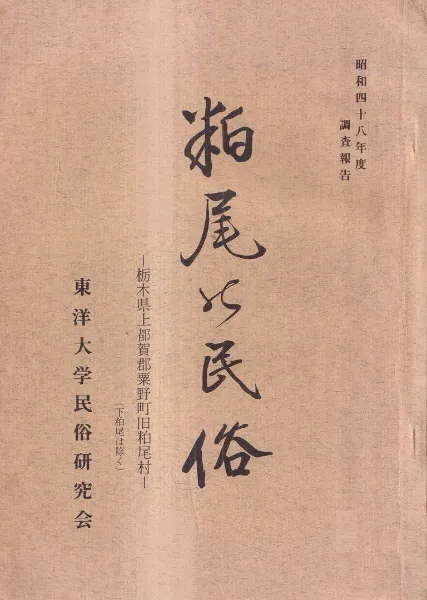 昭和四十八年度
調査報告
粕尾の民俗
―栃木県上都賀郡粟野町旧粕尾村―
(下粕尾は除く)
東洋大学民俗研究会